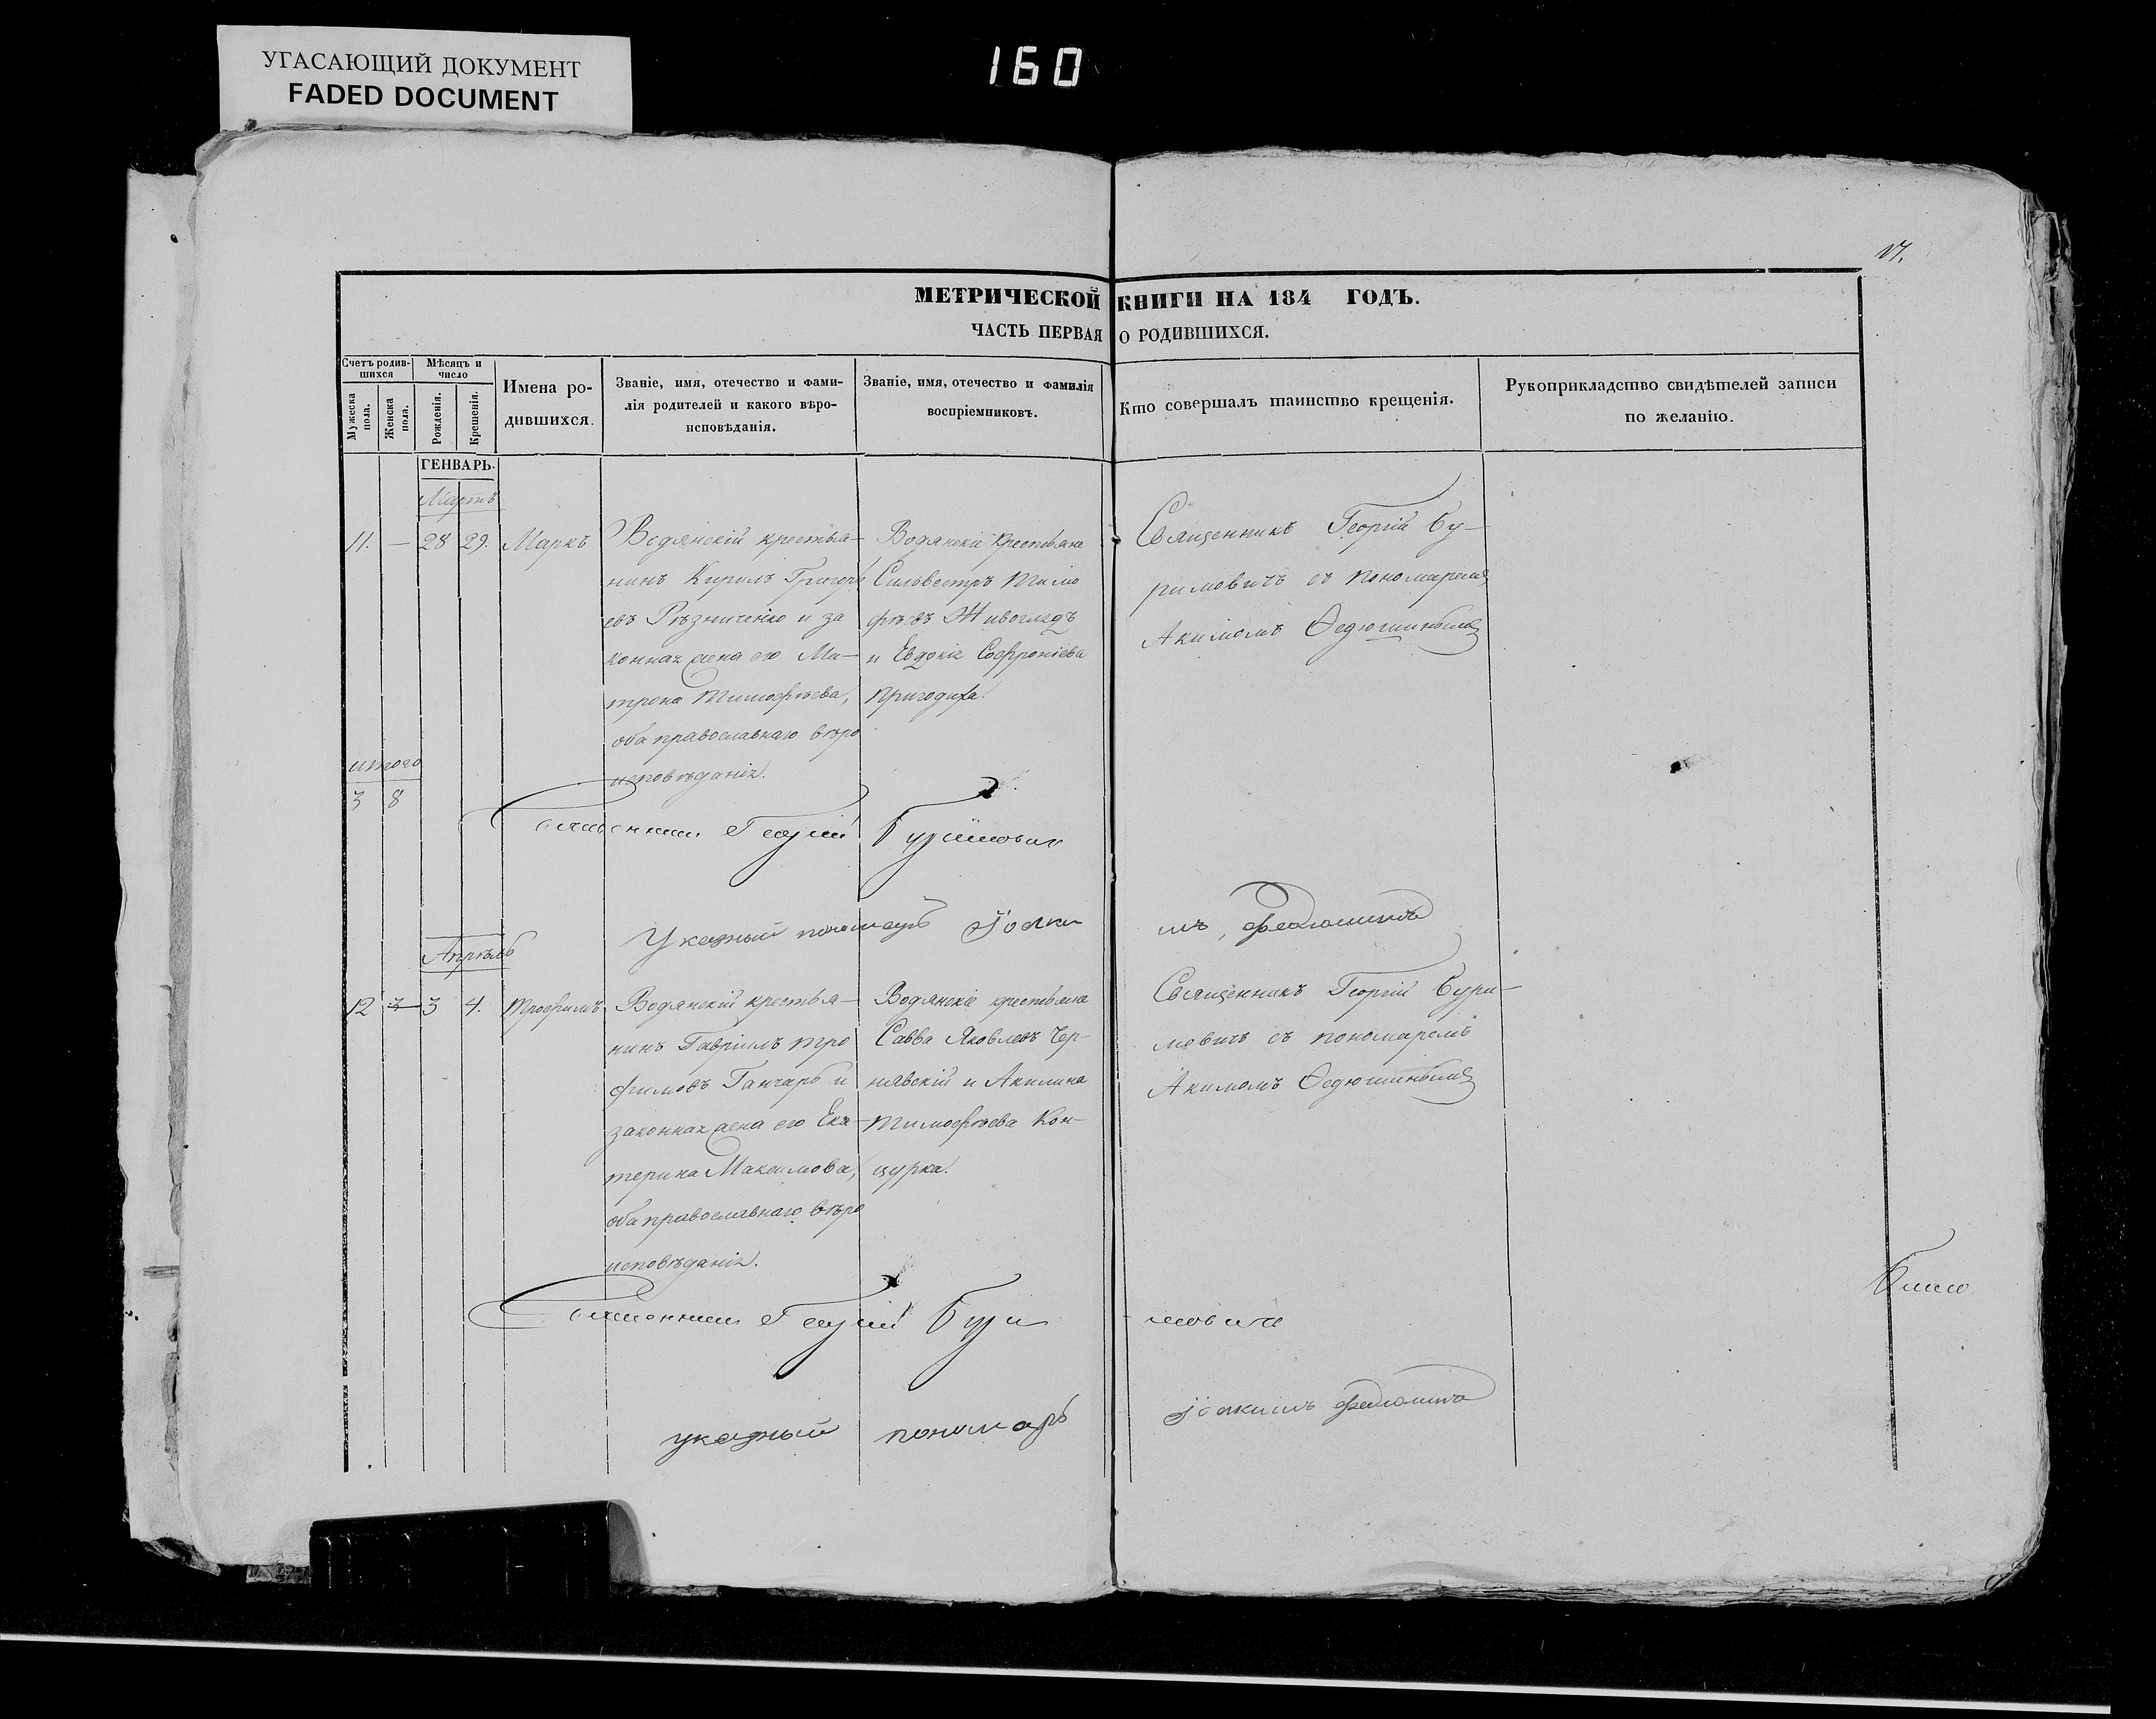 УГАСАЮЩИЙ ДОКУМЕНТ
FADED DOCUMENT
160
17.
МЕТРИЧЕСКОЙ КНИГИ НА 184 ГОДЪ.
ЧАСТЬ ПЕРВАЯ О РОДИВШИХСЯ.
Счетъ родив-
шихся
Мужеска
пола.
Женска
пола.
Мѣсяцъ и
число
Рожденія.
Крещенія.
Имена ро-
дившихся.
Званіе, имя, отечество и фами-
лія родителей и какого вѣро-
исповѣданія.
Званіе, имя, отечество и фамилія
воспріемниковъ.
Кто совершалъ таинство крещенія.
Рукоприкладство свидѣтелей записи
по желанію.
ГЕНВАРЬ.
Мартъ
11. — 28 29. Маркъ
Водянскій крестья-
нинъ Кирилъ Григорь
евъ Рѣзниченко и за
конная жена его Ма-
трона Тимофѣева,
оба православнаго вѣро
исповѣданія.
Водянскіе крестьяне
Сильвестръ Тимо
фѣевъ Живоглядъ
и Евдокія Софроніева
Пригодиха.
Священникъ Георгій Бу-
римовичъ съ пономаремъ
Акимомъ Ѳедюшинымъ
итого
3 8
Священникъ Георгій Буримовичъ
Указный пономарь Іоаки
мъ Федюшинъ
Апрѣль
12 3 4. Трофимъ
Водянскій крестья-
нинъ Гавріилъ Тро
фимовъ Ганчарь и
законная жена его Ека-
терина Максимова,
оба православнаго вѣро
исповѣданія.
Водянскіе крестьяне
Савва Яковлевъ Чер-
нявскій и Акилина
Тимофѣева Кон-
цурка.
Священникъ Георгій Бури-
мовичъ съ пономаремъ
Акимомъ Ѳедюшинымъ
Священникъ Георгій Бури
мовичъ
указный пономарь
Іоакимъ Федюшинъ